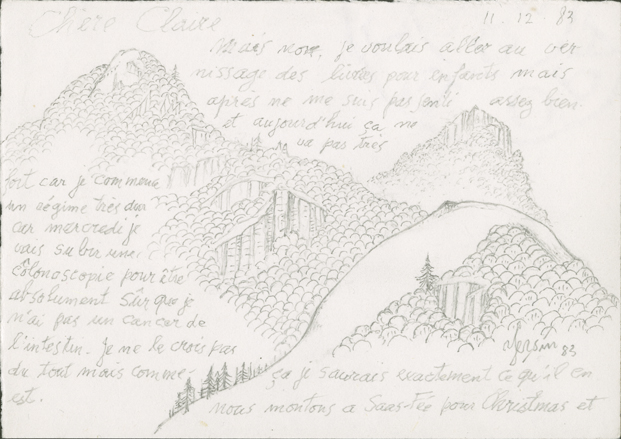 Chère Claire
11.12.83
Mais non, je voulais aller au ver
nissage des livres pour enfants mais
après ne me suis pas senti assez bien
et aujourd'hui ça ne
va pas très
fort car je commence
un régime très dur
car mercredi je
vais subir une
côlonoscopie pour être
absolument sûr que je
n'ai pas un cancer de
l'intestin. Je ne le crois pas
du tout mais comme
est.
ça je saurais exactement ce qu'il en
nous montons a Saas-Fée pour Christmas et
83